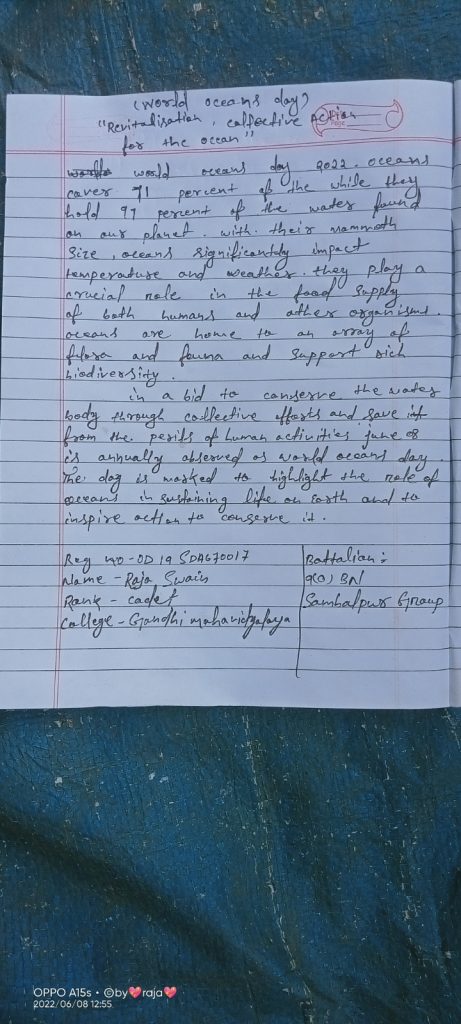 (World oceans day)
"Revitalisation, collective Action
for the ocean"
Page
world oceans day 2022. oceans
cover 71 percent of the while they
hold 97 percent of the water found
on our planet. with their mammoth
size, oceans significantly impact
temperature and weather. they play a
crucial role in the food supply
of both humans and other organisms.
oceans are home to an array of
flora and fauna and support rich
biodiversity.
in a bid to conserve the water
body through collective efforts and save it
from the perils of human activities june 08
is annually observed as world oceans day.
The day is marked to highlight the role of
oceans in sustaining life on Earth and to
inspire action to conserve it.
Reg no - OD 19 SDA670017
Name - Raja Swain
Rank - cadet
College - Gandhi mahavidyalaya
Battalian:
9(O) BN
Sambalpur Group
OPPO A15s • ©by❤raja❤
2022/06/08 12:55